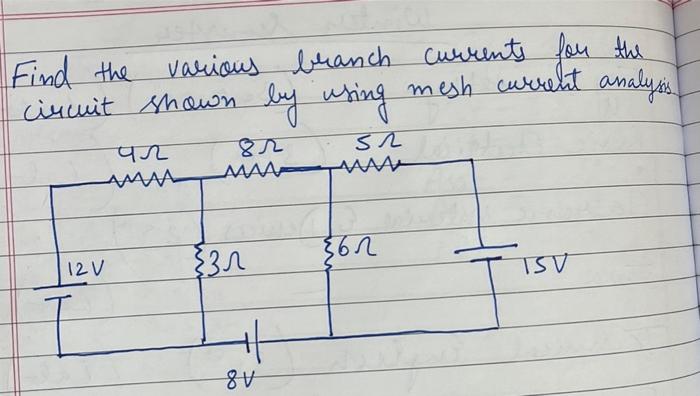 Find the various branch currents for the
circuit shown by using mesh current analysis
4Ω 8Ω 5Ω
12V 3Ω 6Ω 15V
8V